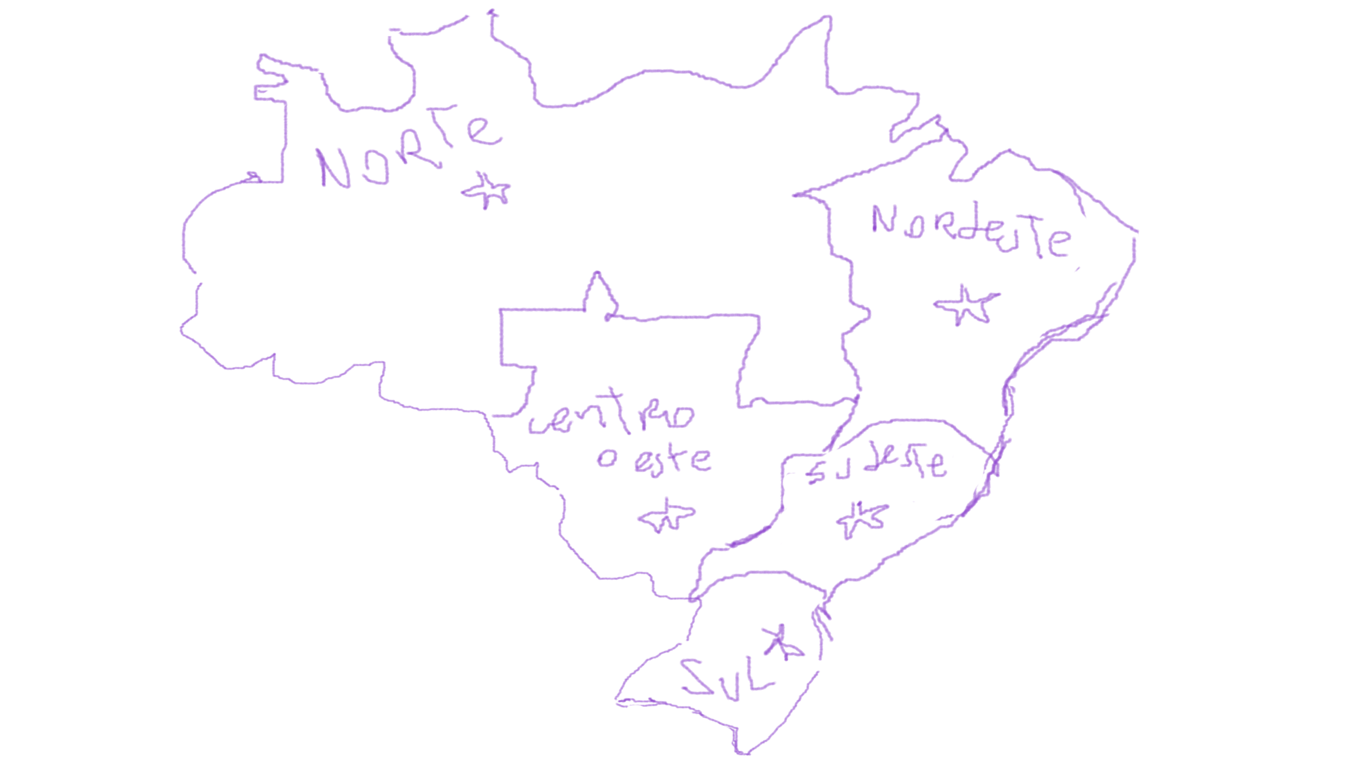 NORTE
NORdesTe
centro
oeste
SUdesTe
SUL